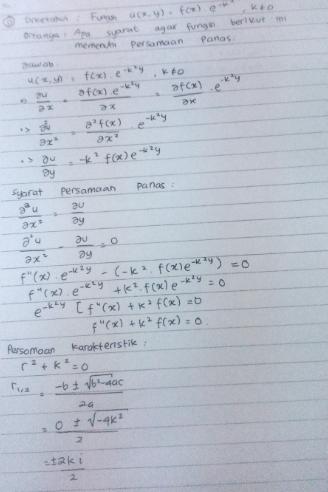 Diketahui : Fungsi u(x,y) = f(x) e^-k²y, k≠0
Ditanya : Apa syarat agar fungsi berikut ini
memenuhi Persamaan Panas.
Jawab
u(x,y) = f(x) . e^-k²y, k≠0
∂u/∂x = ∂f(x) e^-k²y/∂x = ∂f(x)/∂x . e^-k²y
∂²u/∂x² = ∂²f(x)/∂x² e^-k²y
∂u/∂y = -k² f(x) e^-k²y
Syarat Persamaan Panas :
∂²u/∂x² = ∂u/∂y
∂²u/∂x² - ∂u/∂y = 0
f"(x) . e^-k²y - (-k² . f(x) e^-k²y) = 0
f"(x) e^-k²y + k² . f(x) e^-k²y = 0
e^-k²y [f"(x) + k² f(x) = 0
f"(x) + k² f(x) = 0
Persamaan Karakteristik :
r² + k² = 0
r₁,₂ = -b ± √b²-4ac / 2a
= 0 ± √-4k² / 2
= ±2k i / 2